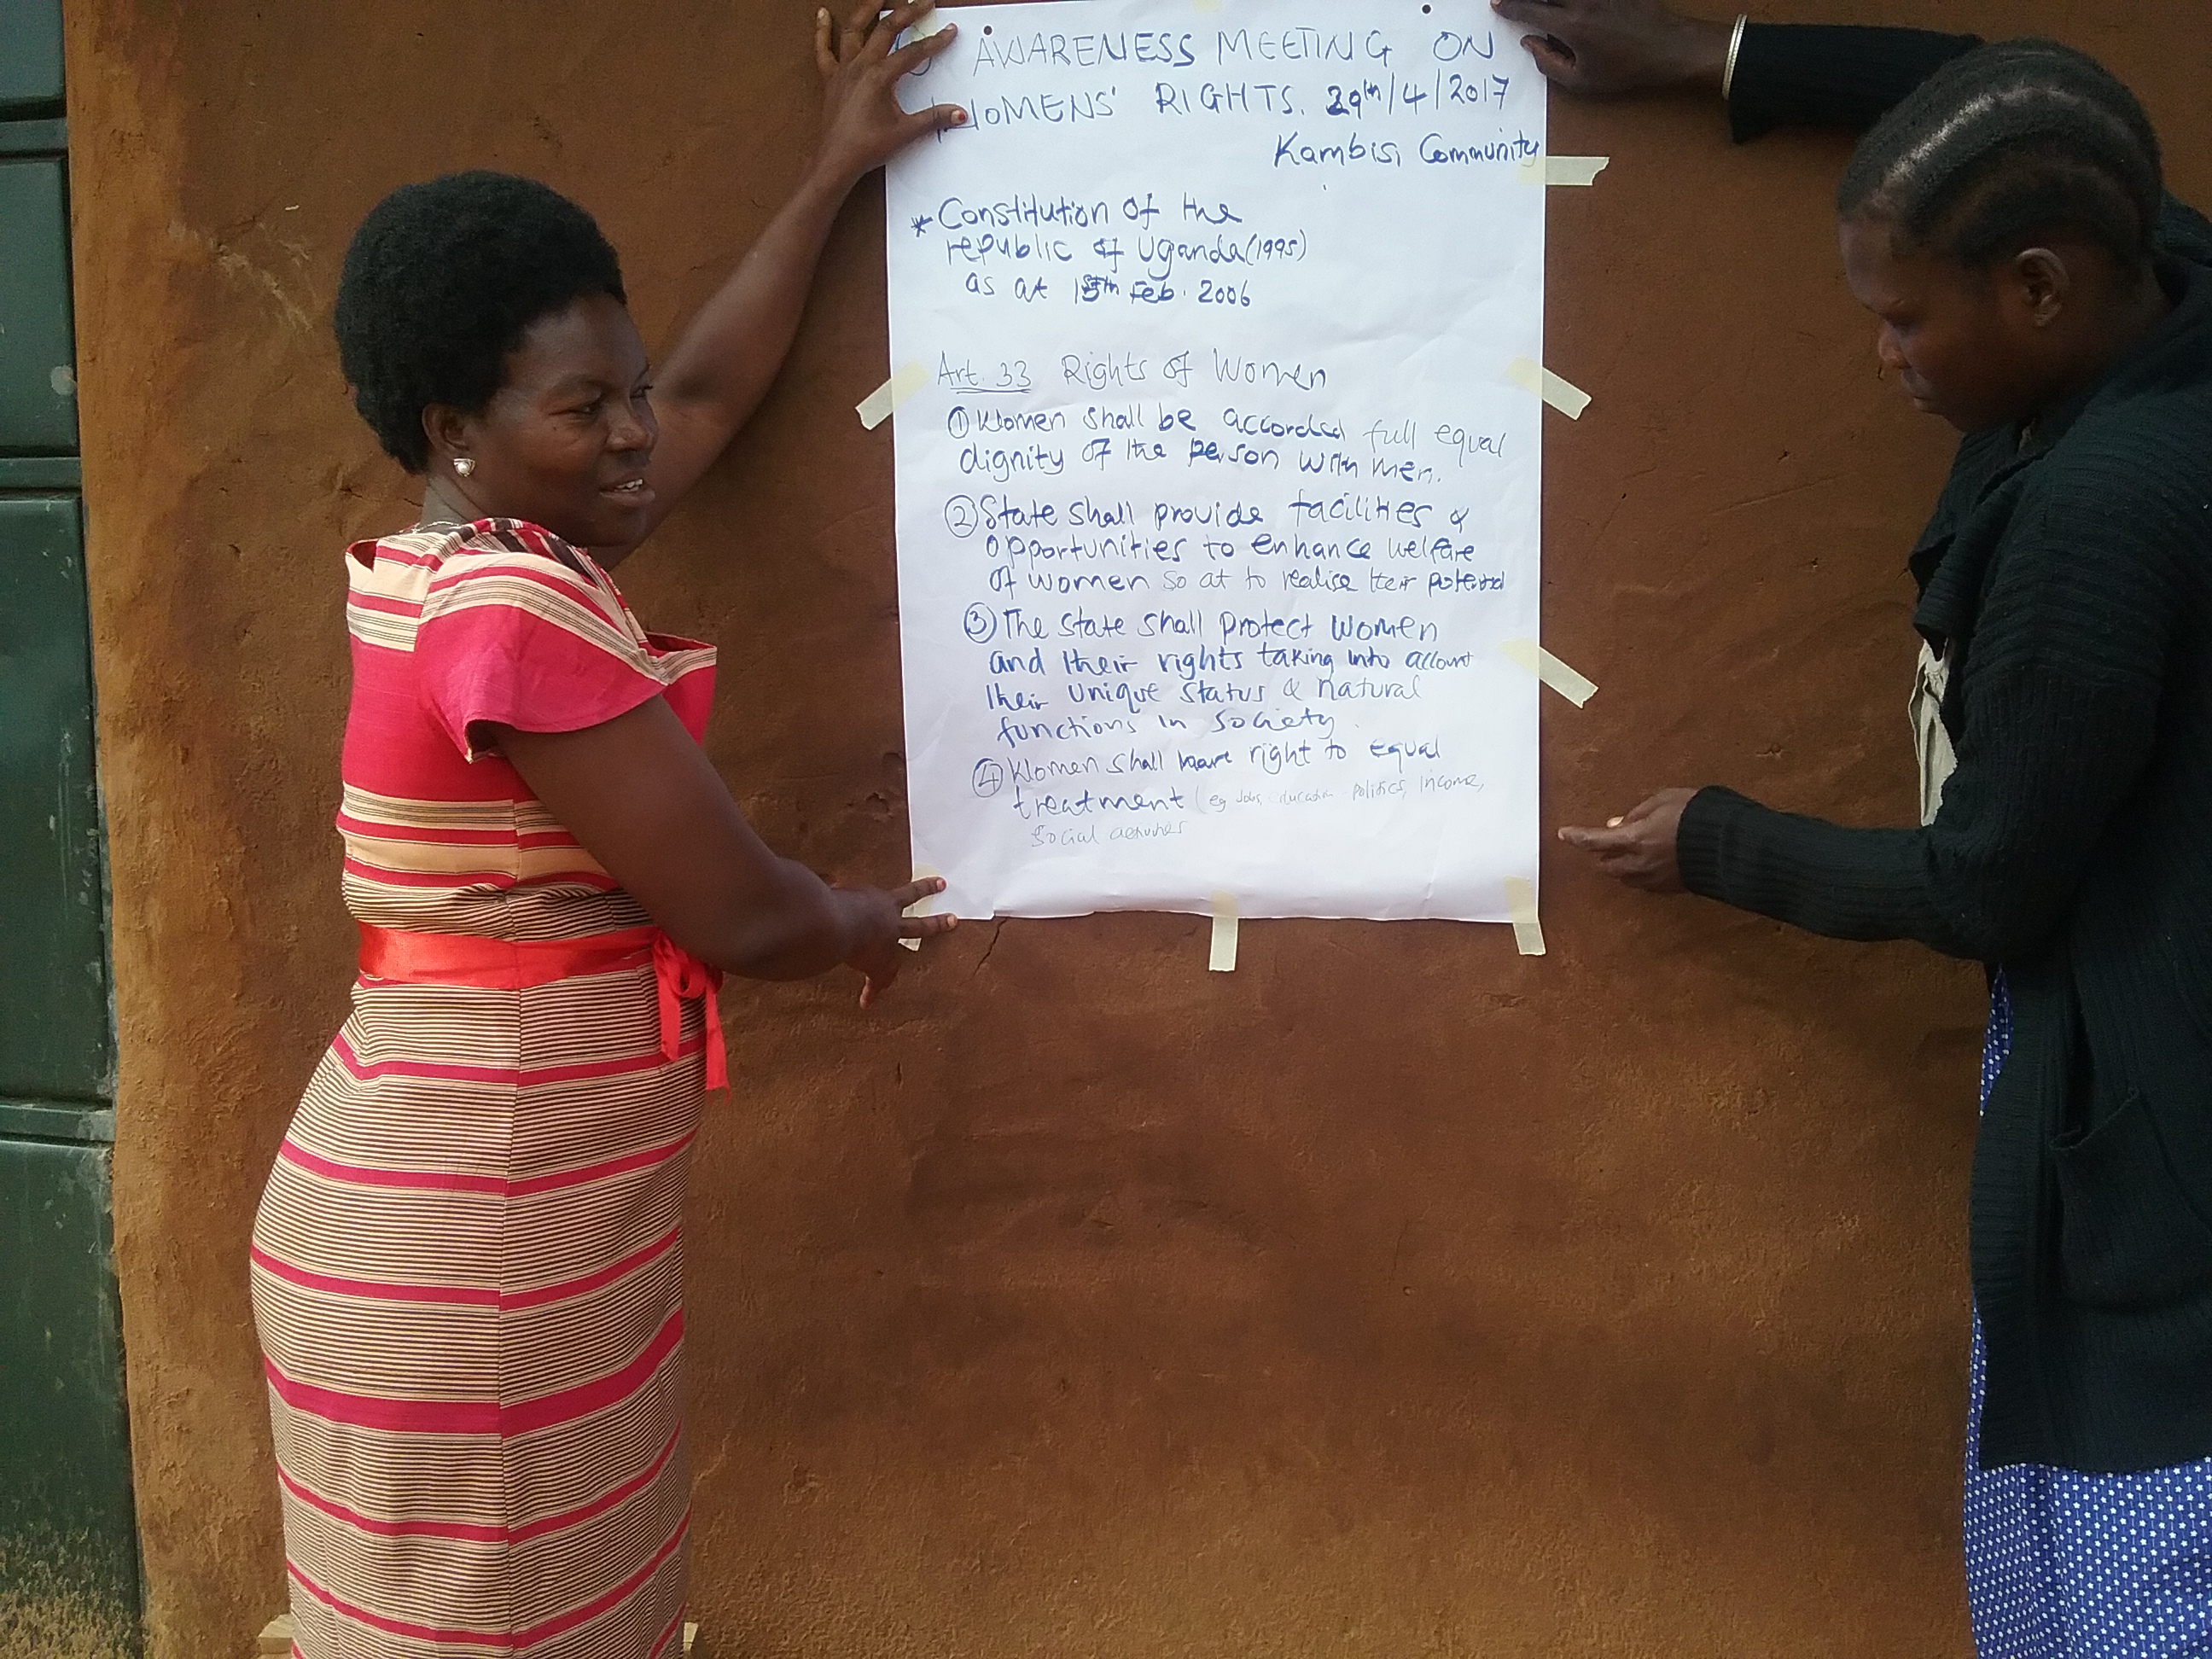 AWARENESS MEETING ON
WOMENS' RIGHTS. 29th/4/2017
Kambisi Community
* Constitution of the
republic of Uganda (1995)
as at 15th Feb. 2006
Art. 33 Rights of Women
① Women shall be accorded full equal
dignity of the person with men.
② State shall provide facilities &
opportunities to enhance welfare
of women so at to realise their potential
③ The State shall protect women
and their rights taking into account
their unique status & natural
functions in society.
④ Women shall have right to equal
treatment (eg Jobs, education politics, income,
Social activities